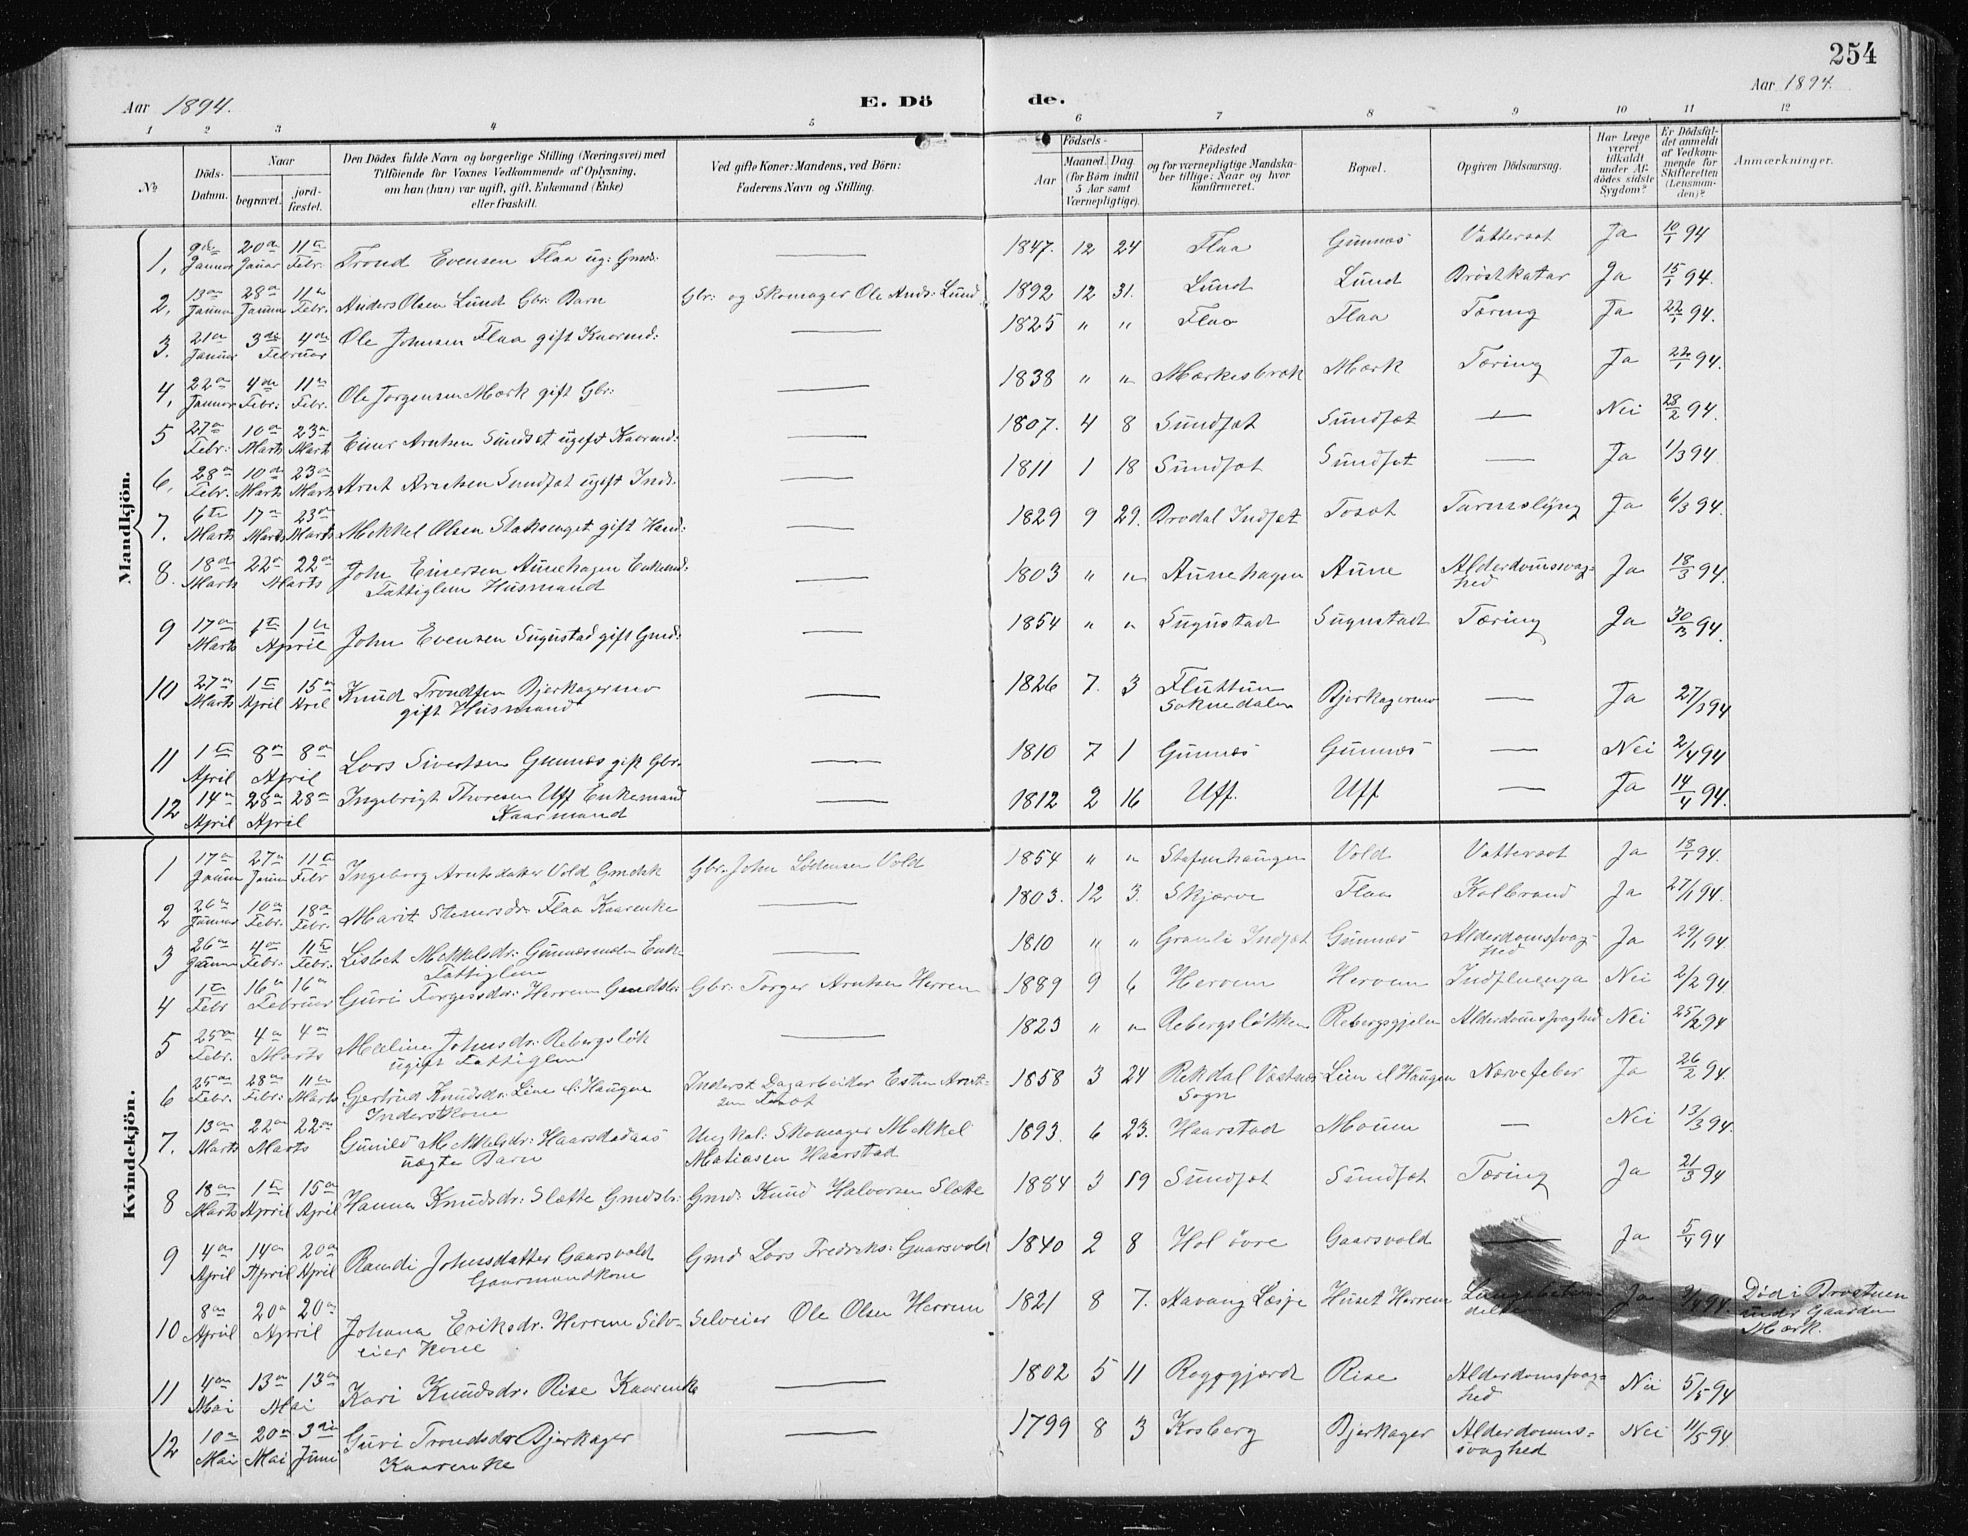 254
Aar 1894.
E. Dö
de.
Aar 1894.
1 2 3 4 5 6 7 8 9 10 11 12
№ Döds-Datum. Naar begravet. jordfæstet. Den Dödes fulde Navn og borgerlige Stilling (Næringsvei) med Tilföiende for Voxnes Vedkommende af Oplysning, om han (hun) var ugift, gift, Enkemand (Enke) eller fraskilt. Ved gifte Koner: Mandens, ved Börn: Faderens Navn og Stilling. Födsels- Aar Maaned. Dag (for Börn indtil 5 Aar samt Værnepligtige). Födested og for værnepligtige Mandskaber tillige: Naar og hvor Konfirmeret. Bopæl. Opgiven Dödsaarsag. Har Læge været tilkaldt under Afdödes sidste Sygdom? Er Dödsfaldet anmeldt af Vedkommende for Skifteretten (Lensmanden)? Anmærkninger.
Mandkjön.
1, 9de Januar 20de Januar 11te Febr. Trond Evensen Flaa ug: Gmd: — 1847. 12 24 Flaa Gunnæs Vattersot Ja 10/1 94
2, 13de Januar 28de Januar 11te Febr. Anders Olsen Lund Gbr: Barn Gbr: og Skomager Ole Ands: Lund 1892 12 31. Lund Lund Bröstkatar Ja 15/1 94.
3. 21de Januar 3die 4de Februar Ole Johnsen Flaa gift Kaarmd: — 1825 " " Flaa Flaa Tæring Ja 22/1 94.
4, 22de Januar 4de Febr: 11te Febr. Ole Jorgensen Mærk gift Gbr: — 1838 " " Mærkesbræk Mærk Tæring Ja 22/1 94.
5 27de Febr: 10de Marts 23de Marts Einer Arntsen Sundset ugift Kaarmd: — 1807. 4 8 Sundset Sundset — Nei 28/2 94.
6, 28de Febr. 10de Marts 23de Marts Arnt Arntsen Sundset ugift Inds: — 1811 1 18 Sundset Sundset — Ja 1/3 94
7. 6te Marts 17de Marts 23de Marts Mekkel Olsen Staksenget gift Hand: — 1829 9 29. Brodal Indset Toset Tarmslyng Ja 6/3 94.
8. 18de Marts 22de 22de Marts John Einersen Aunehagen Enkemd: Fattiglem Husmand — 1803 " " Aunehagen Aune Alderdomssvaghed Ja 18/3 94.
9 17de Marts 1te 1te April John Evensen Sugustad gift Gmd: — 1854 " " Sugustad Sugustad Tæring Ja 30/3 94.
10 27de Marts 1te April 15de Aril Knud Trondsen Bjerkagermo gift Husmand — 1826 7. 3 Fluttum Soknedalen Bjerkagermo — Ja 27/3 94
11 1te April 8de 8de April Lars Sivertsen Gunnæs gift Gbr. — 1810 7 1 Gunnæs Gunnæs — Nei 2/4 94
12 14de April 28de 28de April Ingebrigt Thoresen Uff Enkemand Kaarmand — 1812 2 16 Uff. Uff — Ja 14/4 94.
Kvindekjön.
1 17de Januar 27de Januar 11te Febr Ingeborg Arntsdatter Vold Gmdsk Gbr. John Vold 1854 " " Vold Vattersot Ja 18/1 94.
2 26de Januar 10de Febr: 18de Febr. Marit Stenersdr: Flaa Kaarenke — 1803. 12 3. Skjærve Flaa Kolbrand Ja 27/1 94.
3 26de Januar 4de Febr. 11te Febr. Lisbet Mekkelsdr: Enke Fattiglem — 1810 " " Granli Indset Gunnæs Alderdomssvaghed Ja 29/1 94.
4 1te Febr 16de 16de Februar Guri Torgersdr: Herrem Gmdsbr: Gbr: Torger Arntsen Herrem 1889 9 6 Herrem Herrem Indfluenza Nei 2/2 94.
5 25de Febr. 4de 4de Marts Maline Johnsdr: Rebergsløk ugift Fattiglem — 1823 " " Rebergsløkken Rebergsgjelen Alderdomssvaghed Nei 25/2 94
6 25de Febr. 28de Febr. 11te Marts Gjertrud Knudsdr: Lien el: Haugen Inderstkone Inderst Dagarbeider Esten Arntsen Toset 1858 3 24 Rekdal Vestnæs Sogn Lien el Haugen Nærvefeber Ja 26/2 94.
7. 13de Marts 22de 22de Marts Gunild Mekkelsdr: Haarstadaas uægte Barn Ungkal: Skomager Mekkel Matiasen Haarstad 1893. 6 23. Haarstad Mouen — Nei 13/3 94.
8 18de Marts 1te April 15de April Hanna Knudsdr: Slætte Gmdsbr: Gmd: Knud Halvorsen Slætte 1884 3 19 Sundset Sundset Tæring Ja 21/3 94
9 4de April 14de April 20de April Randi Johnsdatter Gaarsvold Gaarmandkone Gmd Lars Fredriks: Gaarsvold 1840 2 8 Hol övre Gaarsvold — Ja 5/4 94
10 8de April 20de 20de April Johana Eriksdr. Herrem Selveier Kone Selveier Ole Olsen Herrem 1821 8 7. Lesje Huset Herrem Ja 9/4 94. Död i under Gaarden Mærk.
11 4de Mai 13de 13de Mai Kari Knudsdr: Rise Kaarenke — 1802 5 11 Roggjerdt Rise Alderdomssvaghed Nei 5/5 94
12 10de Mai 20de Mai 3die Juni Guri Trondsdr Bjerkager Kaarenke — 1799 8 3 Krsberg Bjerkager Alderdomssvaghed Nei 11/5 94